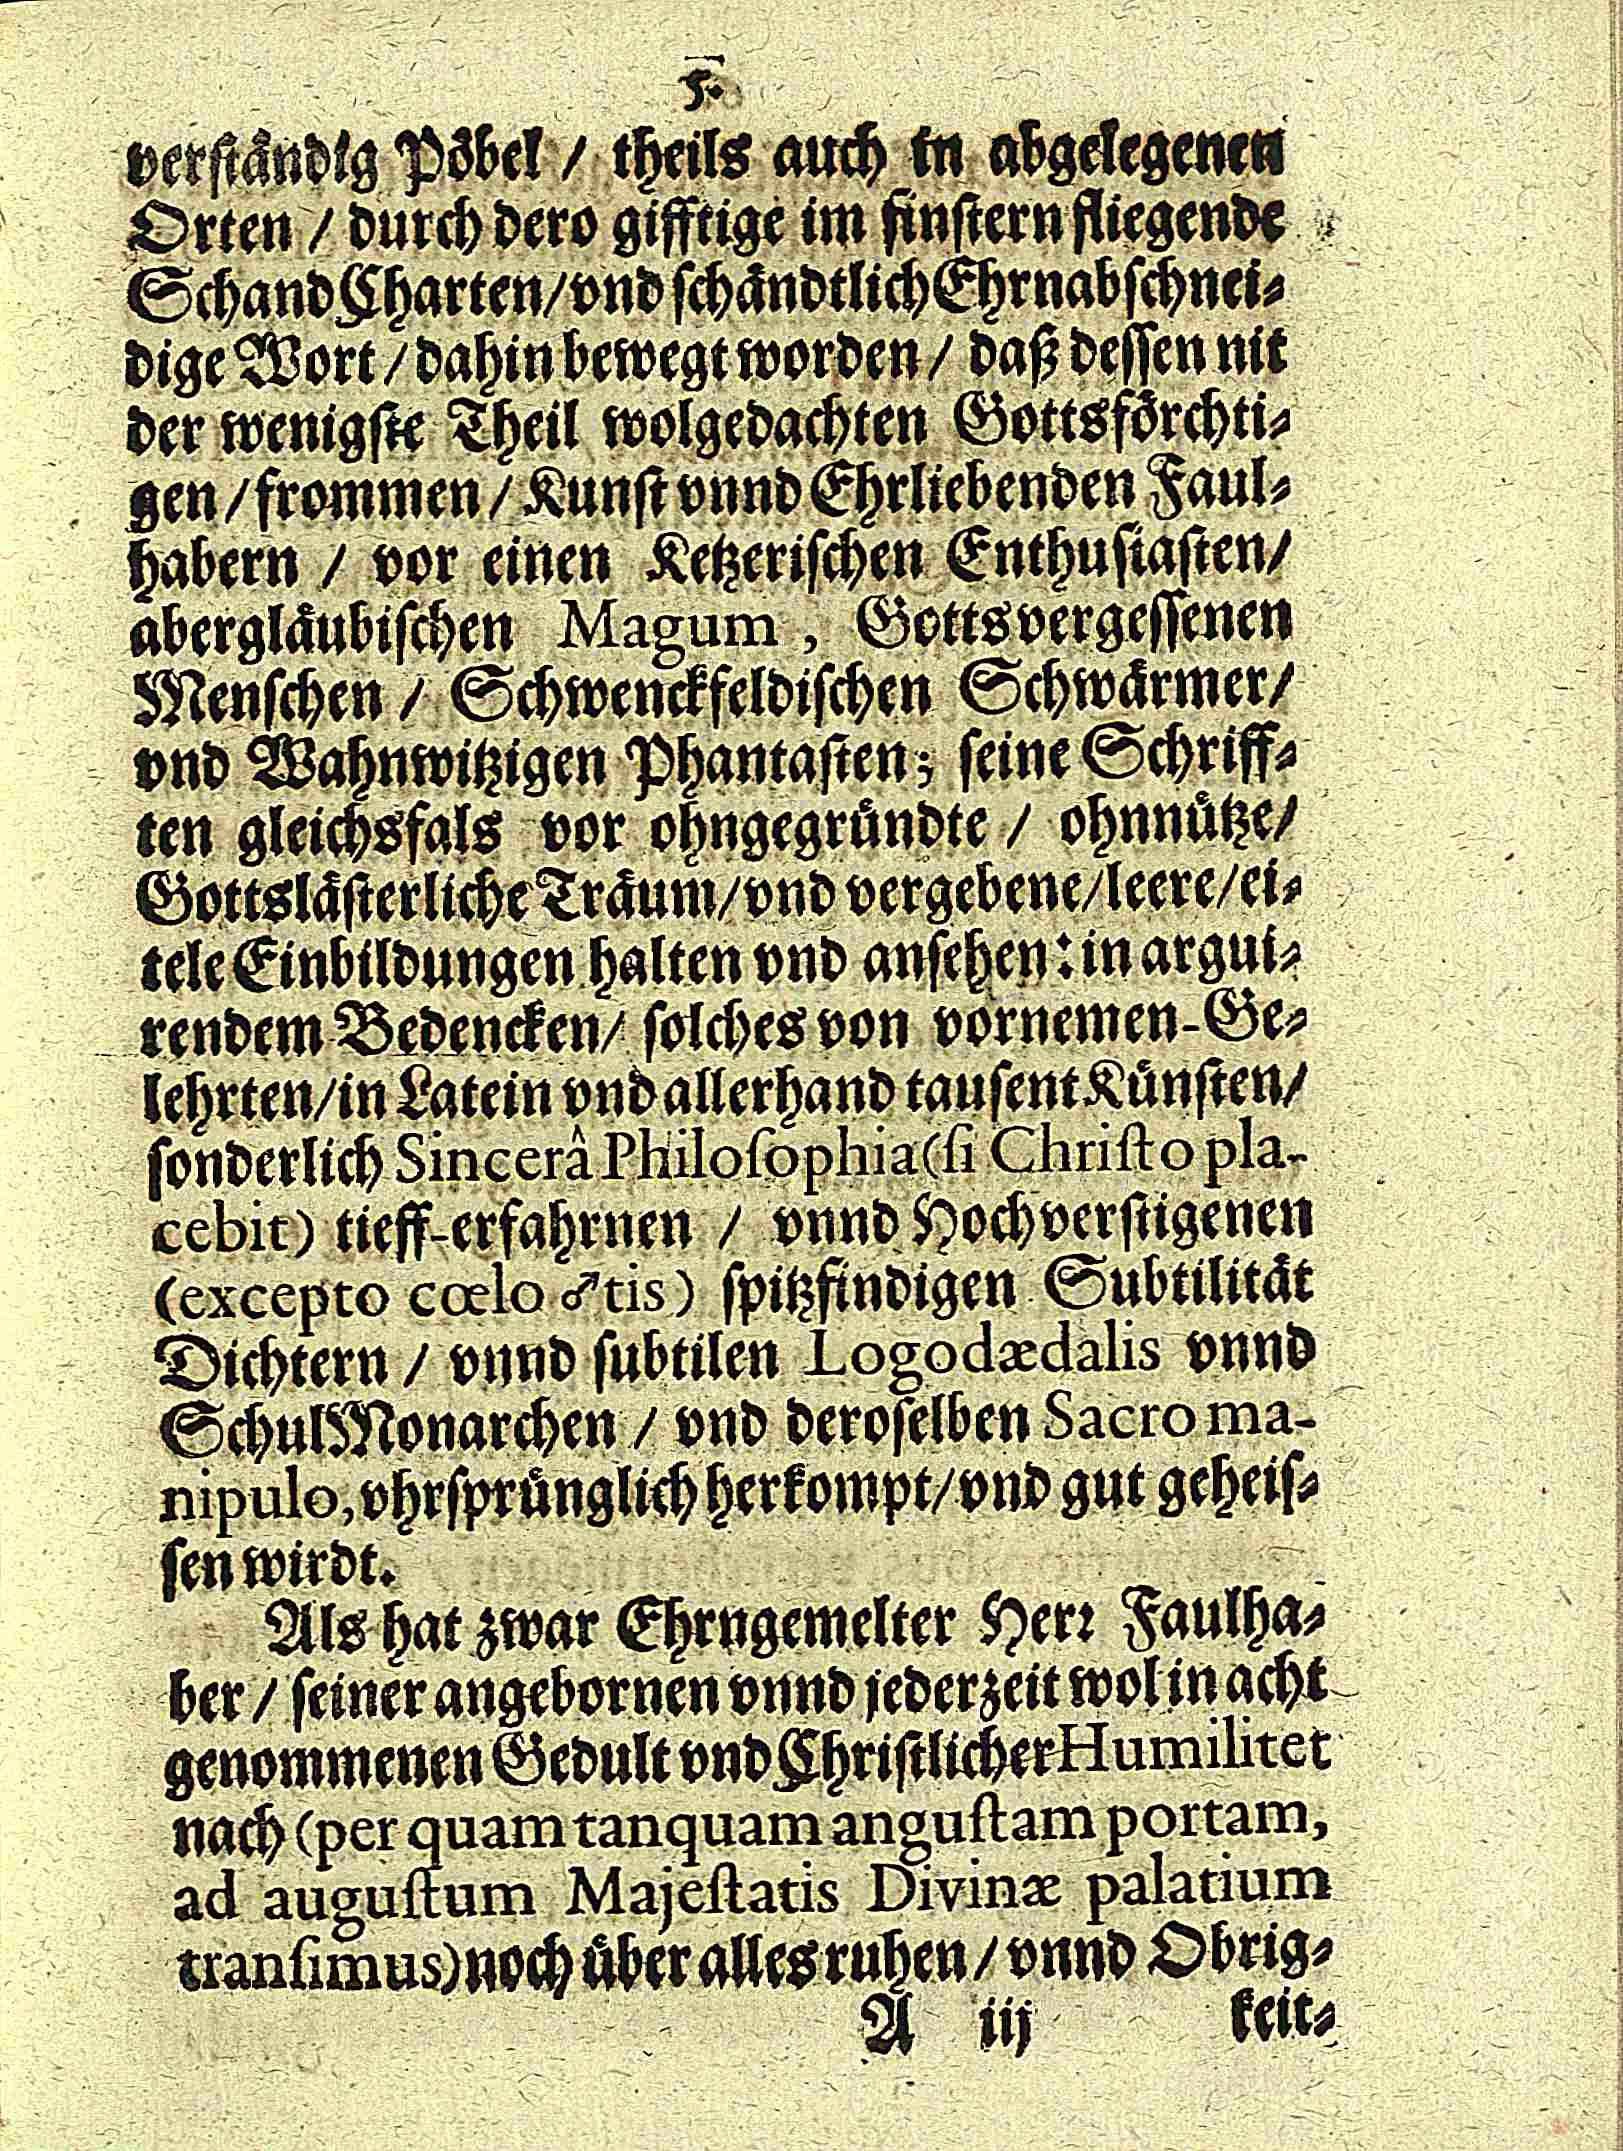 5.
verſtaͤndig Poͤbel / theils auch in abgelegenen
Orten / durch dero gifftige im finſtern fliegende
SchandCharten/vnd ſchaͤndtlich Ehrnabſchnei⸗
dige Wort / dahin bewegt worden / daß deſſen nit
der wenigſte Theil wolgedachten Gottsfoͤrchti⸗
gen / frommen / Kunſt vnnd Ehrliebenden Faul⸗
habern / vor einen Ketzeriſchen Enthuſiaſten/
aberglaͤubiſchen Magum, Gottsvergeſſenen
Menſchen / Schwenckfeldiſchen Schwaͤrmer/
vnd Wahnwitzigen Phantaſten; ſeine Schriff⸗
ten gleichsfals vor ohngegruͤndte / ohnnuͤtze/
Gottslaͤſterliche Traͤum/vnd vergebene/leere/ei⸗
tele Einbildungen halten vnd anſehen: in argui⸗
rendem Bedencken/ ſolches von vornemen-Ge⸗
lehrten/in Latein vnd allerhand tauſent Kuͤnſten/
ſonderlich Sincerâ Philoſophia (ſi Chriſto pla-
cebit) tieff-erfahrnen / vnnd Hochverſtigenen
(excepto cœlo ♂tis) ſpitzfindigen Subtilitaͤt
Dichtern / vnnd ſubtilen Logodædalis vnnd
SchulMonarchen / vnd deroſelben Sacro ma-
nipulo, vhrſpruͤnglich herkompt/vnd gut geheiſ⸗
ſen wirdt.
Als hat zwar Ehrngemelter Herꝛ Faulha⸗
ber / ſeiner angebornen vnnd jederzeit wol in acht
genommenen Gedult vnd Chriſtlicher Humilitet
nach (per quam tanquam anguſtam portam,
ad auguſtum Majeſtatis Divinæ palatium
tranſimus) noch uͤber alles ruhen / vnnd Obrig⸗
A iij keit⸗